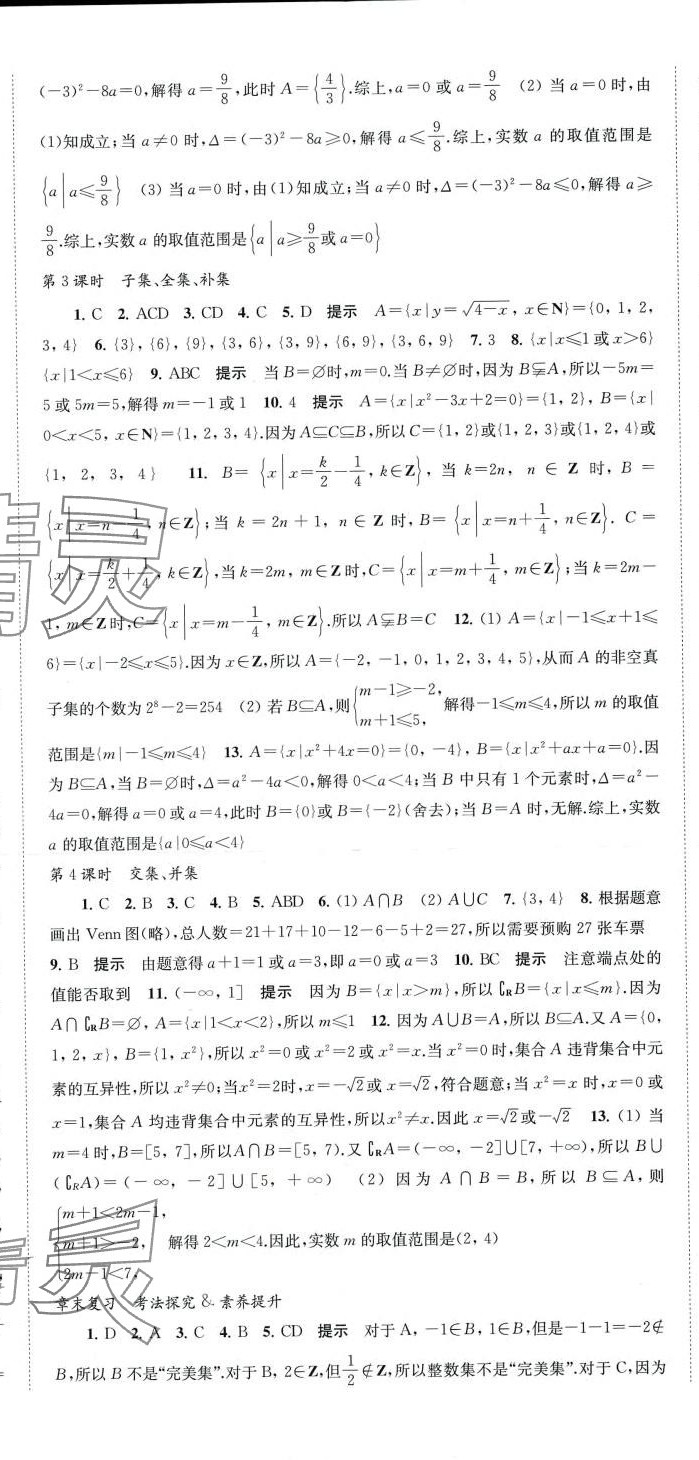 (-3)²-8a=0,解得 a=9/8,此时 A={4/3}.综上,a=0 或 a=9/8 (2) 当 a=0 时,由
(1)知成立;当 a≠0 时,Δ=(-3)²-8a≥0,解得 a≤9/8.综上,实数 a 的取值范围是
{a|a≤9/8} (3) 当 a=0 时,由(1)知成立;当 a≠0 时,Δ=(-3)²-8a≤0,解得 a≥
9/8.综上,实数 a 的取值范围是{a|a≥9/8或a=0}
第 3 课时 子集、全集、补集
1. C 2. ACD 3. CD 4. C 5. D 提示 A={x|y=√(4-x), x∈N}={0, 1, 2,
3, 4} 6. {3}, {6}, {9}, {3, 6}, {3, 9}, {6, 9}, {3, 6, 9} 7. 3 8. {x|x≤1或x>6}
{x|1<x≤6} 9. ABC 提示 当 B=∅时,m=0.当 B≠∅时,因为 B⫋A,所以-5m=
5 或 5m=5,解得 m=-1或 1 10. 4 提示 A={x|x²-3x+2=0}={1, 2}, B={x|
0<x<5, x∈N}={1, 2, 3, 4}.因为 A⊆C⊆B,所以 C={1, 2}或{1, 2, 3}或{1, 2, 4}或
{1, 2, 3, 4} 11. B={x|x=k/2-1/4, k∈Z},当 k=2n, n∈Z 时,B=
{x|x=n-1/4, n∈Z};当 k=2n+1, n∈Z 时,B={x|x=n+1/4, n∈Z}. C=
{x|x=k/2+1/4, k∈Z},当 k=2m, m∈Z时,C={x|x=m+1/4, m∈Z};当 k=2m-
1, m∈Z时,C={x|x=m-1/4, m∈Z}.所以 A⫋B=C 12. (1) A={x|-1≤x+1≤
6}={x|-2≤x≤5}.因为 x∈Z,所以 A={-2, -1, 0, 1, 2, 3, 4, 5},从而 A 的非空真
子集的个数为 2⁸-2=254 (2) 若 B⊆A,则{m-1≥-2, m+1≤5, 解得-1≤m≤4,所以 m 的取值
范围是{m|-1≤m≤4} 13. A={x|x²+4x=0}={0, -4}, B={x|x²+ax+a=0}.因
为 B⊆A,当 B=∅时,Δ=a²-4a<0,解得 0<a<4;当 B 中只有 1 个元素时,Δ=a²-
4a=0,解得 a=0 或 a=4,此时 B={0}或 B={-2}(舍去);当 B=A 时,无解.综上,实数
a 的取值范围是{a|0≤a<4}
第 4 课时 交集、并集
1. C 2. B 3. C 4. B 5. ABD 6. (1) A∩B (2) A∪C 7. {3, 4} 8. 根据题意
画出 Venn 图(略),总人数=21+17+10-12-6-5+2=27,所以需要预购 27 张车票
9. B 提示 由题意得 a+1=1 或 a=3,即 a=0 或 a=3 10. BC 提示 注意端点处的
值能否取到 11. (-∞, 1] 提示 因为 B={x|x>m},所以∁RB={x|x≤m}.因为
A∩∁RB=∅, A={x|1<x<2},所以 m≤1 12. 因为 A∪B=A,所以 B⊆A.又 A={0,
1, 2, x}, B={1, x²},所以 x²=0 或 x²=2 或 x²=x.当 x²=0 时,集合 A 违背集合中元
素的互异性,所以 x²≠0;当x²=2时,x=-√2或 x=√2,符合题意;当 x²=x 时,x=0 或
x=1,集合 A 均违背集合中元素的互异性,所以x²≠x.因此 x=√2或-√2 13. (1) 当
m=4时,B=[5, 7],所以A∩B=[5, 7).又∁RA=(-∞, -2]∪[7, +∞),所以 B∪
(∁RA)=(-∞, -2]∪[5, +∞) (2) 因为 A∩B=B,所以 B⊆A,则
{m+1<2m-1,
m+1>-2, 解得 2<m<4.因此,实数 m 的取值范围是(2, 4)
2m-1<7,
章末复习 考法探究 & 素养提升
1. D 2. A 3. C 4. B 5. CD 提示 对于 A, -1∈B, 1∈B,但是-1-1=-2∉
B,所以 B 不是“完美集”.对于 B, 2∈Z,但1/2∉Z,所以整数集不是“完美集”.对于 C,因为
精灵
精灵